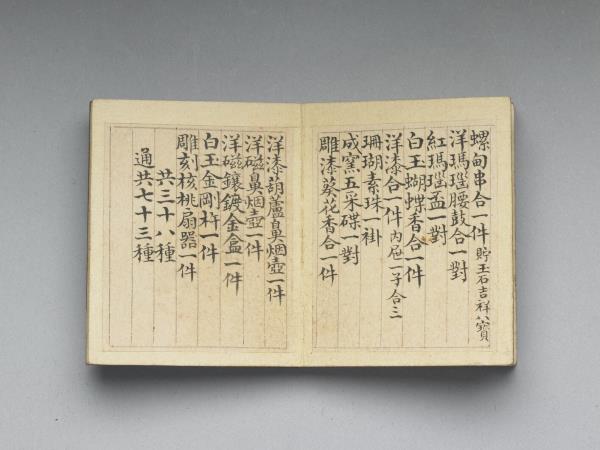 螺甸串合一件貯玉石吉祥八寶
洋瑪瑙腰鼓合一對
紅瑪瑙盃一對
白玉蝴蝶香合一件
洋漆合一件內屉一子合三
珊瑚素珠一褂
成窯五采碟一對
雕漆葵花香合一件
洋漆葫蘆鼻烟壺一件
洋磁鼻烟壺一件
洋磁鑲鍍金盒一件
白玉金剛杵一件
雕刻核桃扇器一件
共三十八種
通共七十三種